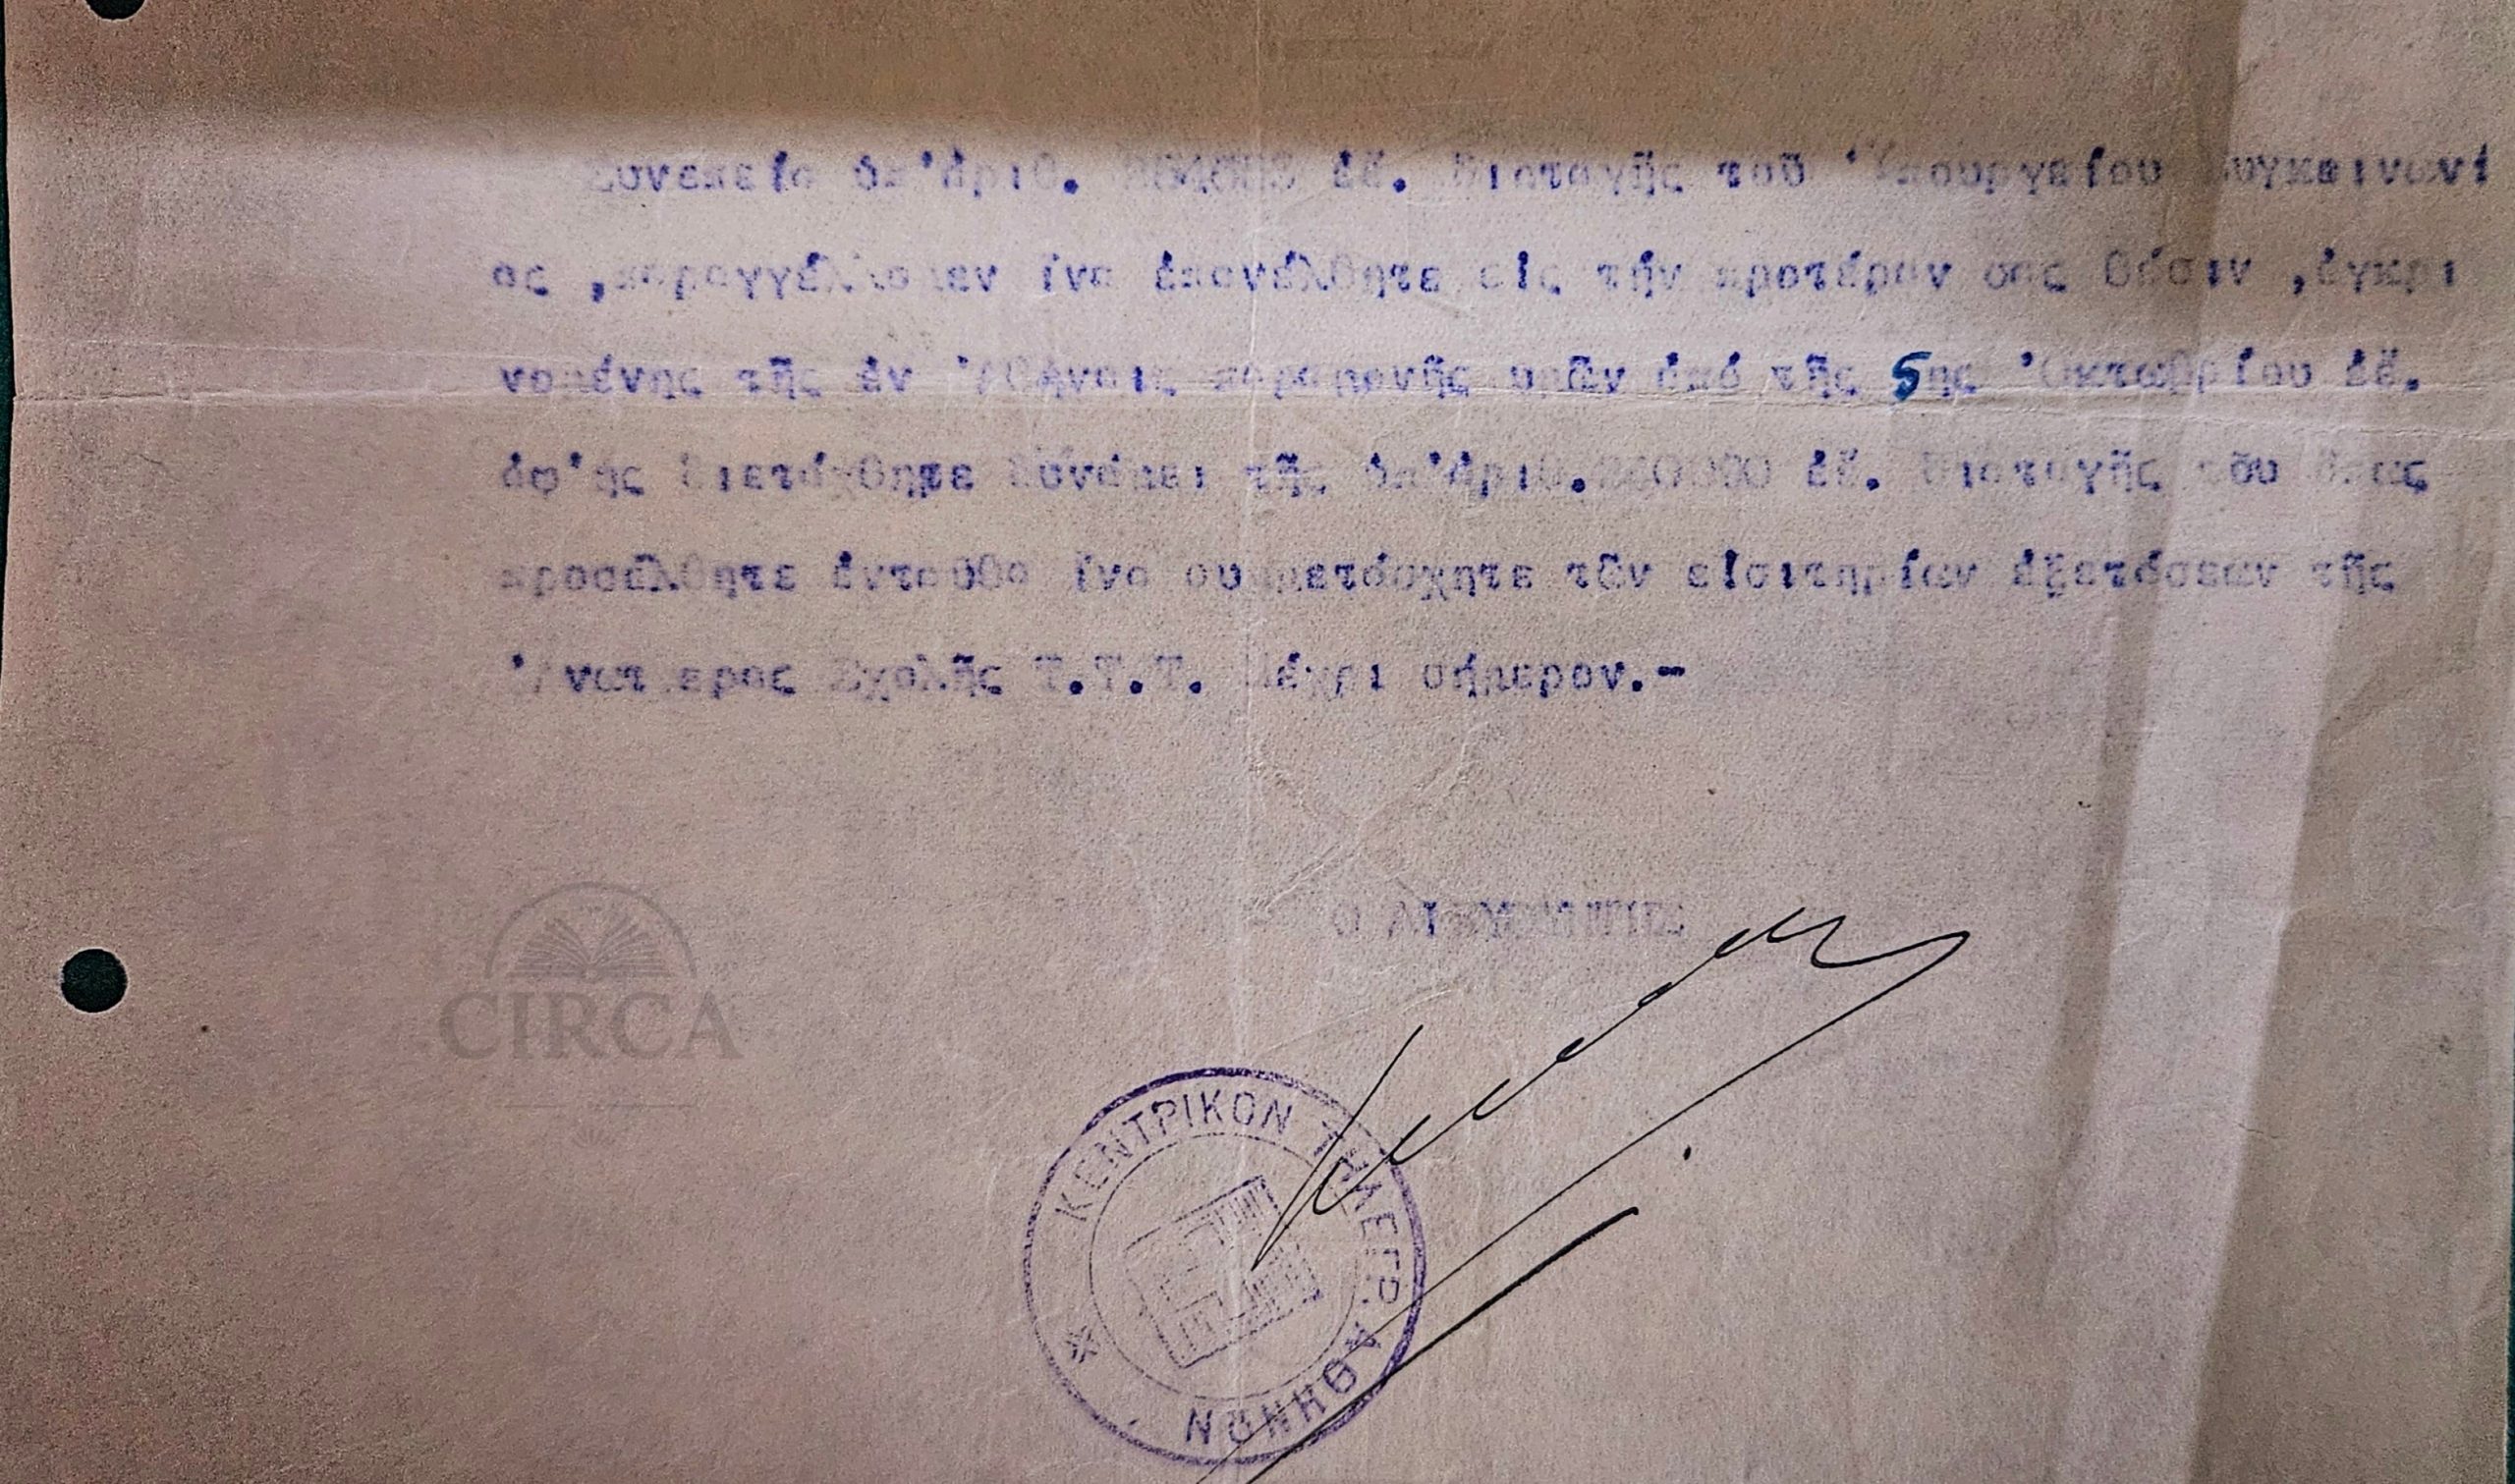 Συνεπεία ὑπ'ἀριθ. ἐἔ. διαταγῆς τοῦ Ὑπουργείου Συγκοινωνί
ας ,παραγγέλλομεν ἵνα ἐπανέλθητε εἰς τήν προτέραν σας θέσιν ,ἐγκρι
νομένης τῆς ἐν Ἀθήναις παραμονῆς υμῶν ἀπό τῆς 5ης Ὀκτωβρίου ἐἔ.
ἀφ'ἧς διετάχθητε δυνάμει τῆς ὑπ'ἀριθ. ἐἔ. διαταγῆς τοῦ ὅπως
προσέλθητε ἐνταῦθα ἵνα συμμετάσχητε τῶν εἰσιτηρίων ἐξετάσεων τῆς
Ἀνωτέρας Σχολῆς Τ.Τ.Τ. μέχρι σήμερον.-
Ο ΔΙΕΥΘΥΝΤΗΣ
CIRCA
ΚΕΝΤΡΙΚΟΝ ΤΗΛΕΓΡ. ΑΘΗΝΩΝ